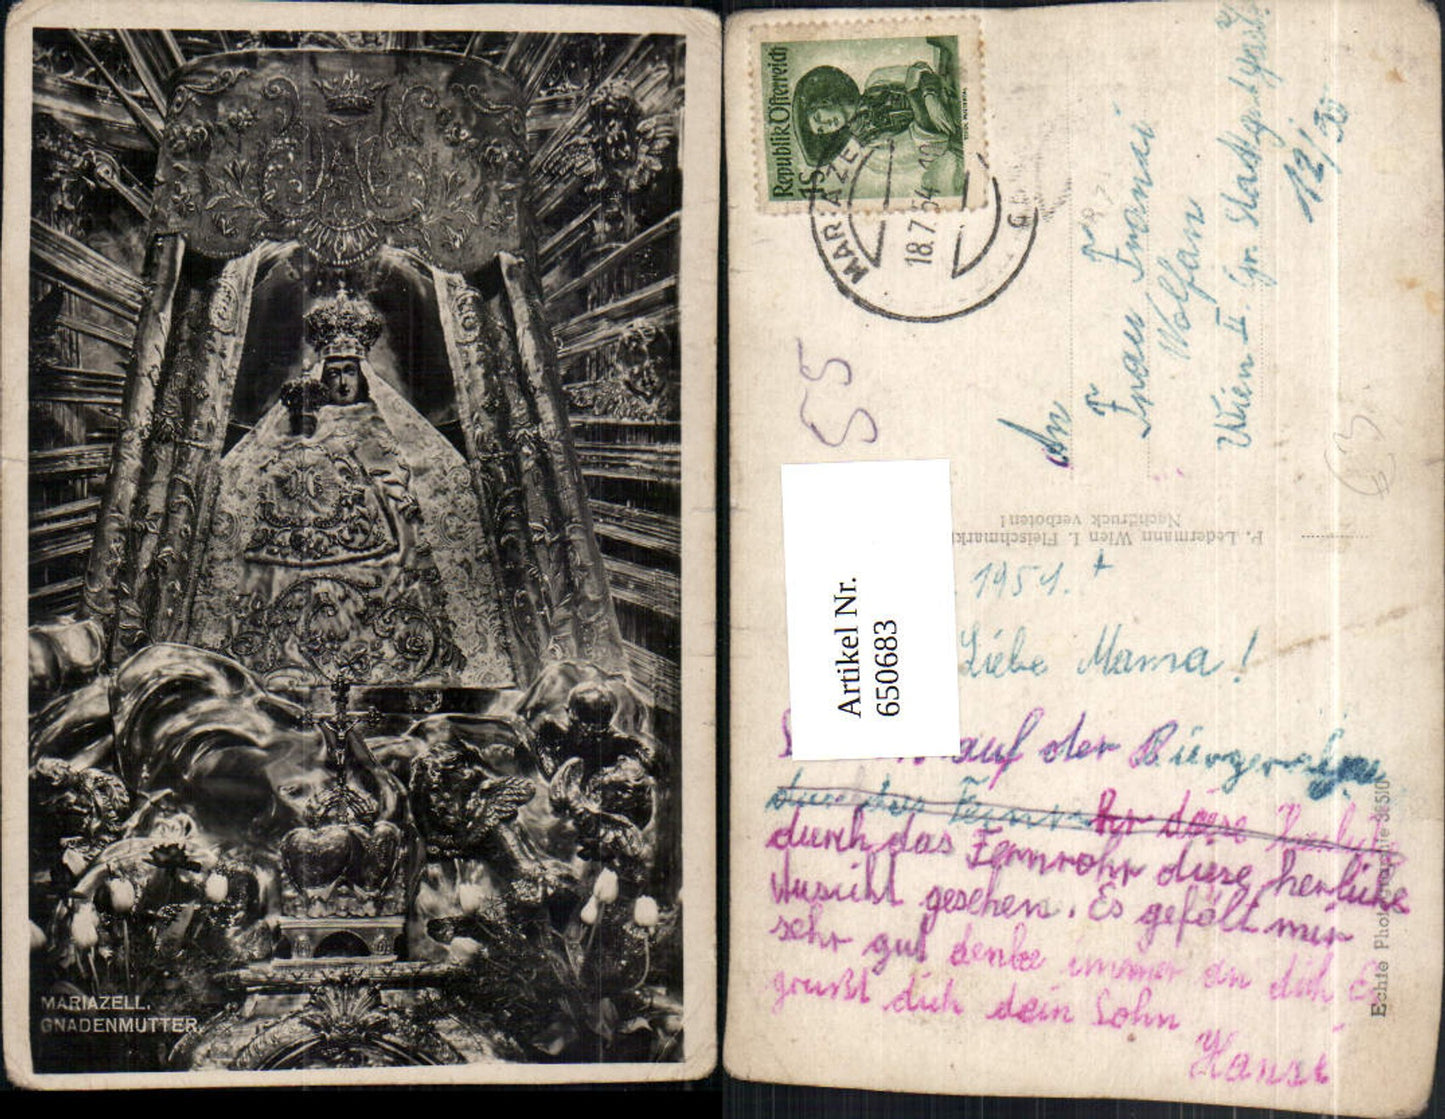 MARIAZELL.
GNADENMUTTER.
Republik Österreich
1S
MARIAZELL
18.7.54
55
An
Frau Franzi
Wolfam
Wien II. Gr. Stadtgutgasse
12/30
P. Ledermann Wien I. Fleischmarkt
Nachdruck verboten!
Artikel Nr.
650683
1954.
Liebe Mama!
auf der Bürgeralpe
durch das Fernrohr diese
durch das Fernrohr diese herliche
Ausicht gesehen. Es gefält mir
sehr gut denke immer an dich Es
grüßt dich dein Sohn
Hansi
Echte Photographie